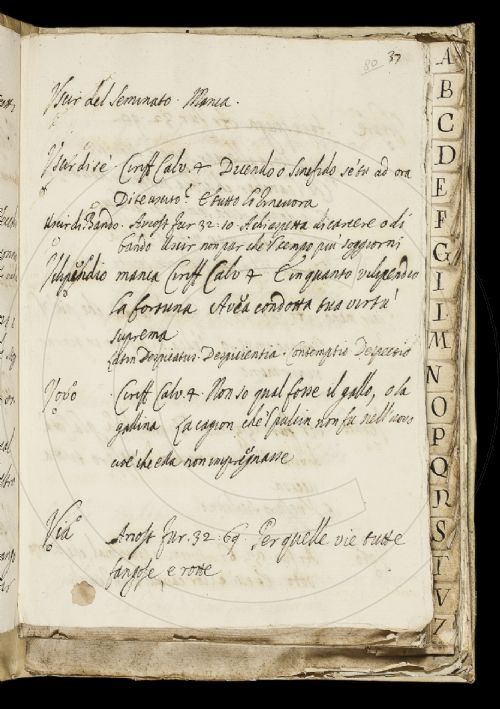 80 37
Uscir del Seminato. Manca.
Uscir di se. Ciriff Calv. 4 Dicendo o Sinefido se'tu ad ora
Di te uscito? E tutto si rincuora
Uscir di Bando. Ariost fur 32. 10 A chi aspetta di carcere o di
bando Uscir non par che 'l tempo piu soggiorni
Vilipendio manca Ciriff Calv 4 E in quanto vilipendio
la fortuna Avea condotta tua virtu
suprema
Latin Despicatus. Despicientia. Contemptio Despectio
Uovo Ciriff Calv. 4. Non so qual fosse il gallo, o la
gallina La cagion che 'l pulcin non fu nell'uovo
cioè che ella non impregnasse
Via Ariost fur. 32. 69 Per quelle vie tutte
fangose e rotte
A
B
C
D
E
F
G
I
L
M
N
O
P
Q
R
S
T
V
Z